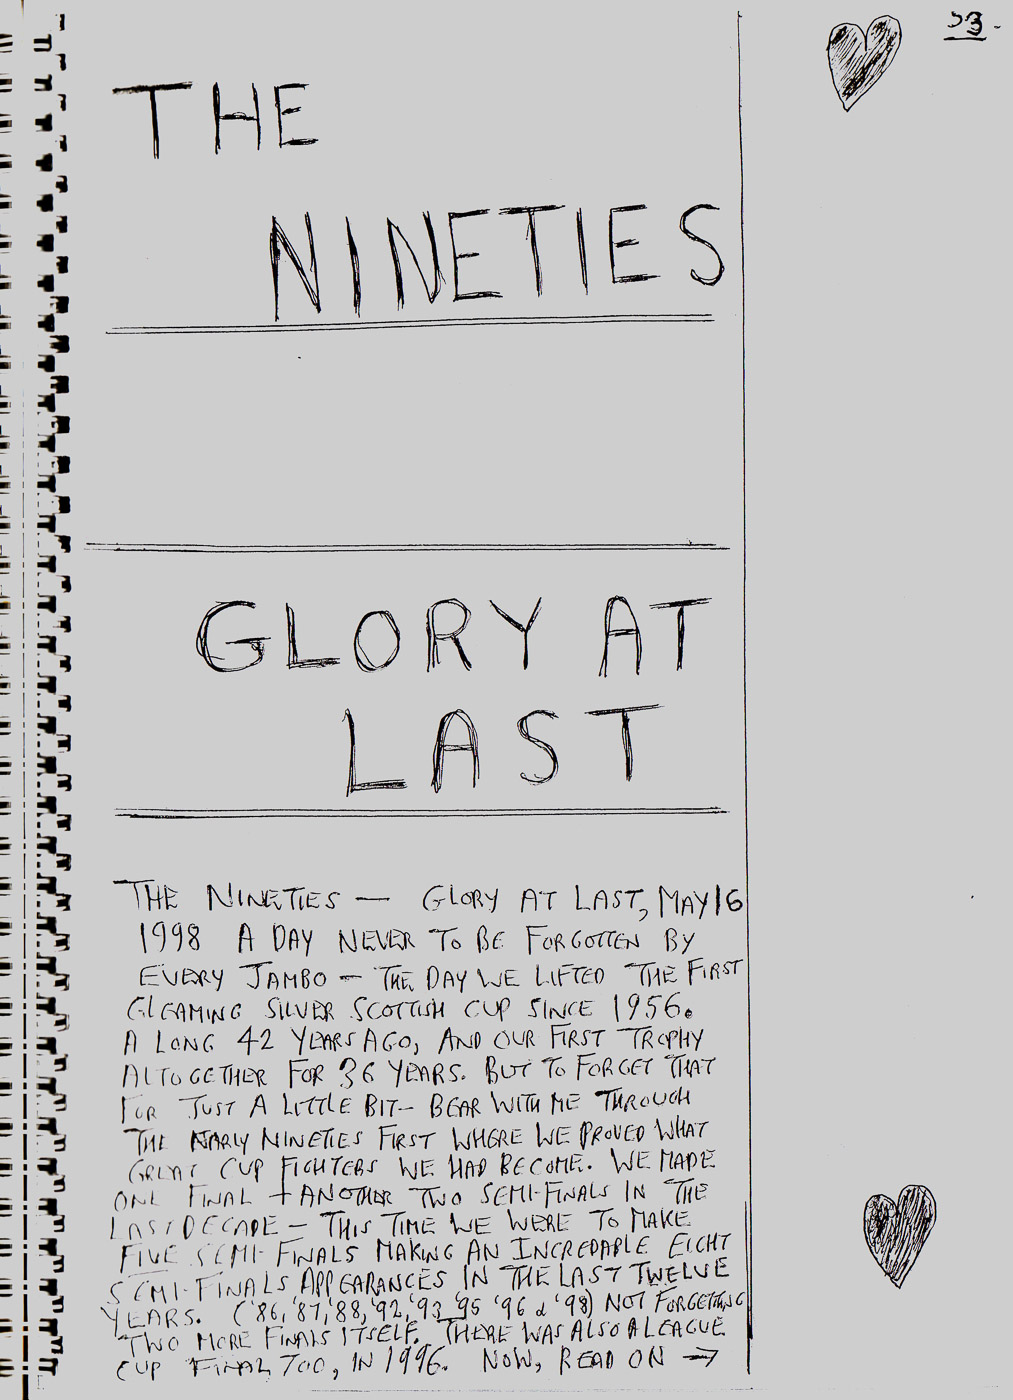 53.
THE
NINETIES
GLORY AT
LAST
THE NINETIES — GLORY AT LAST, MAY 16
1998 A DAY NEVER TO BE FORGOTTEN BY
EVERY JAMBO — THE DAY WE LIFTED THE FIRST
GLEAMING SILVER SCOTTISH CUP SINCE 1956.
A LONG 42 YEARS AGO, AND OUR FIRST TROPHY
ALTOGETHER FOR 36 YEARS. BUT TO FORGET THAT
FOR JUST A LITTLE BIT — BEAR WITH ME THROUGH
THE EARLY NINETIES FIRST WHERE WE PROVED WHAT
GREAT CUP FIGHTERS WE HAD BECOME. WE MADE
ONE FINAL + ANOTHER TWO SEMI-FINALS IN THE
LAST DECADE — THIS TIME WE WERE TO MAKE
FIVE SEMI-FINALS MAKING AN INCREDABLE EIGHT
SEMI-FINALS APPEARANCES IN THE LAST TWELVE
YEARS. ('86, '87, '88, '92, '93 '95 '96 & '98) NOT FORGETTING
TWO MORE FINALS ITSELF. THERE WAS ALSO A LEAGUE
CUP FINAL TOO, IN 1996. NOW, READ ON →